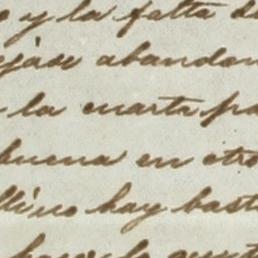 y la falta de
jase abandon
la cuarta pa
buena en otro
llino hay bast